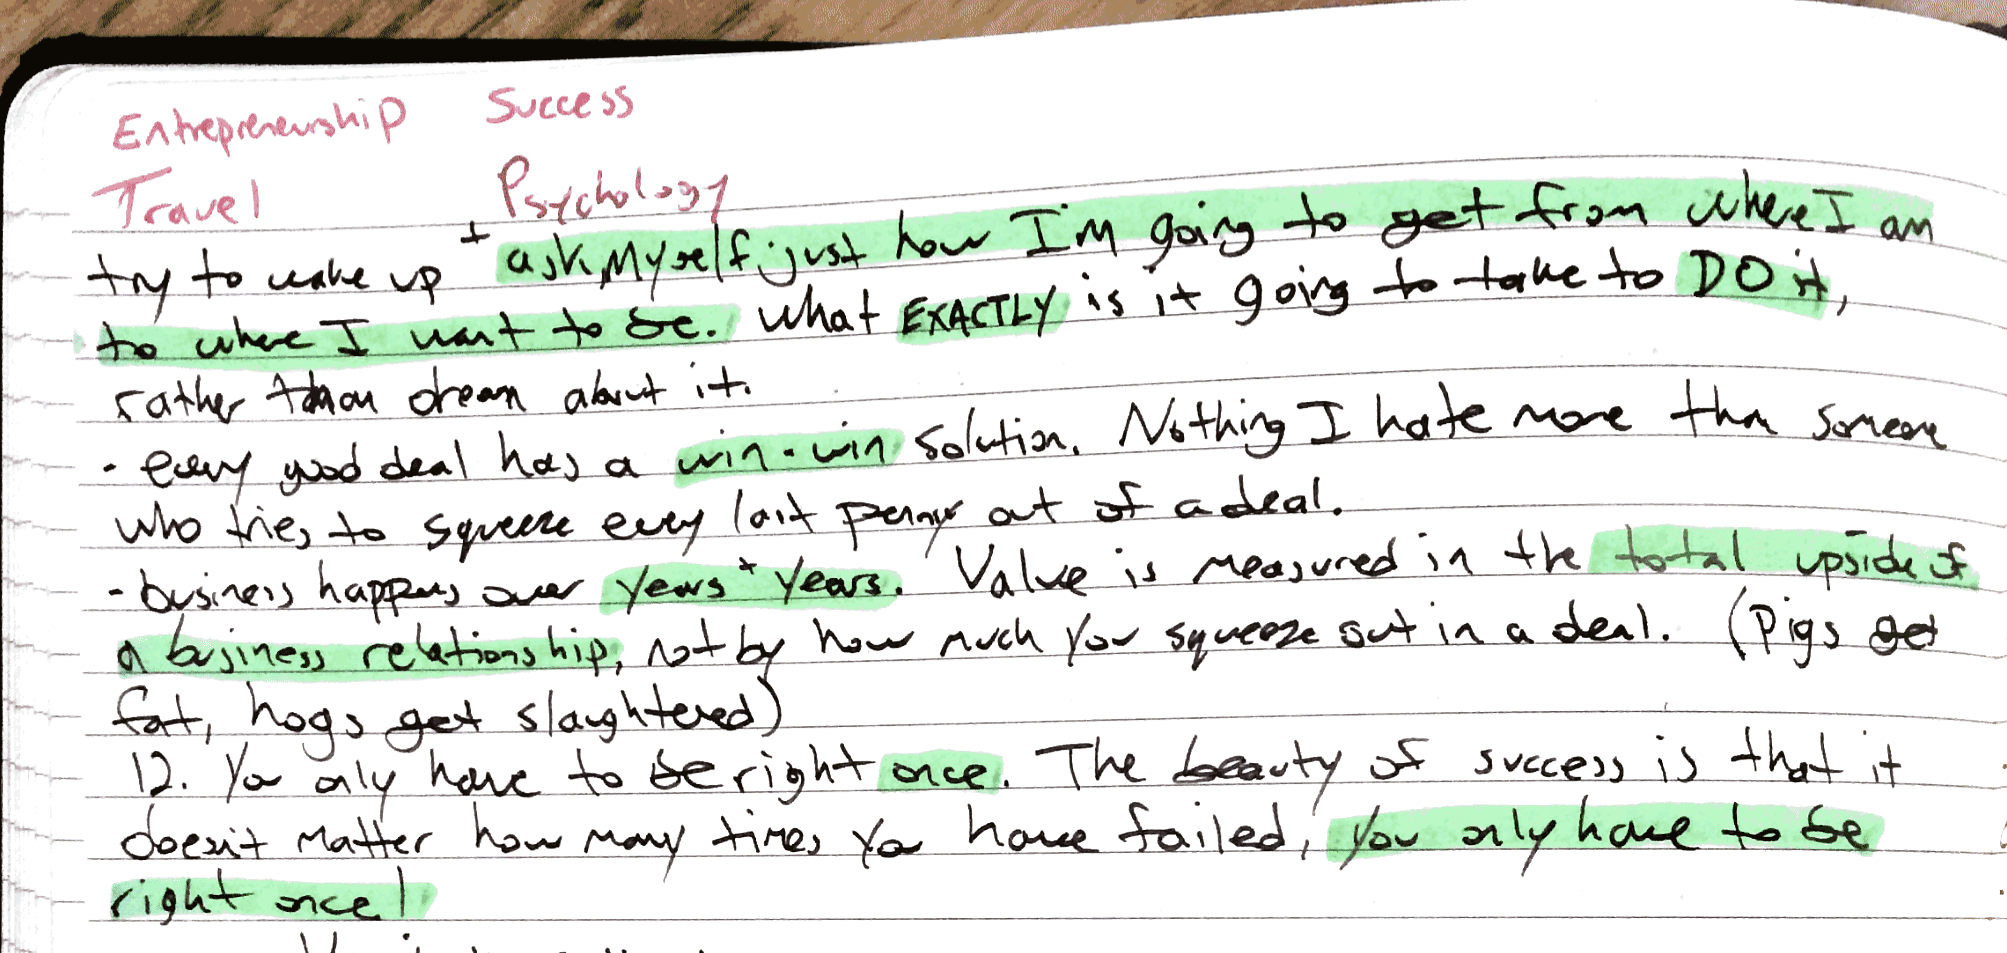 Entrepreneurship Success
Travel Psychology
try to wake up + ask myself just how I'm going to get from where I am
to where I want to be. What EXACTLY is it going to take to DO it,
rather than dream about it.
- every good deal has a win-win solution. Nothing I hate more than someone
who tries to squeeze every last penny out of a deal.
- business happens over years + years. Value is measured in the total upside of
a business relationship, not by how much you squeeze out in a deal. (Pigs get
fat, hogs get slaughtered)
12. You only have to be right once. The beauty of success is that it
doesn't matter how many times you have failed, you only have to be
right once!